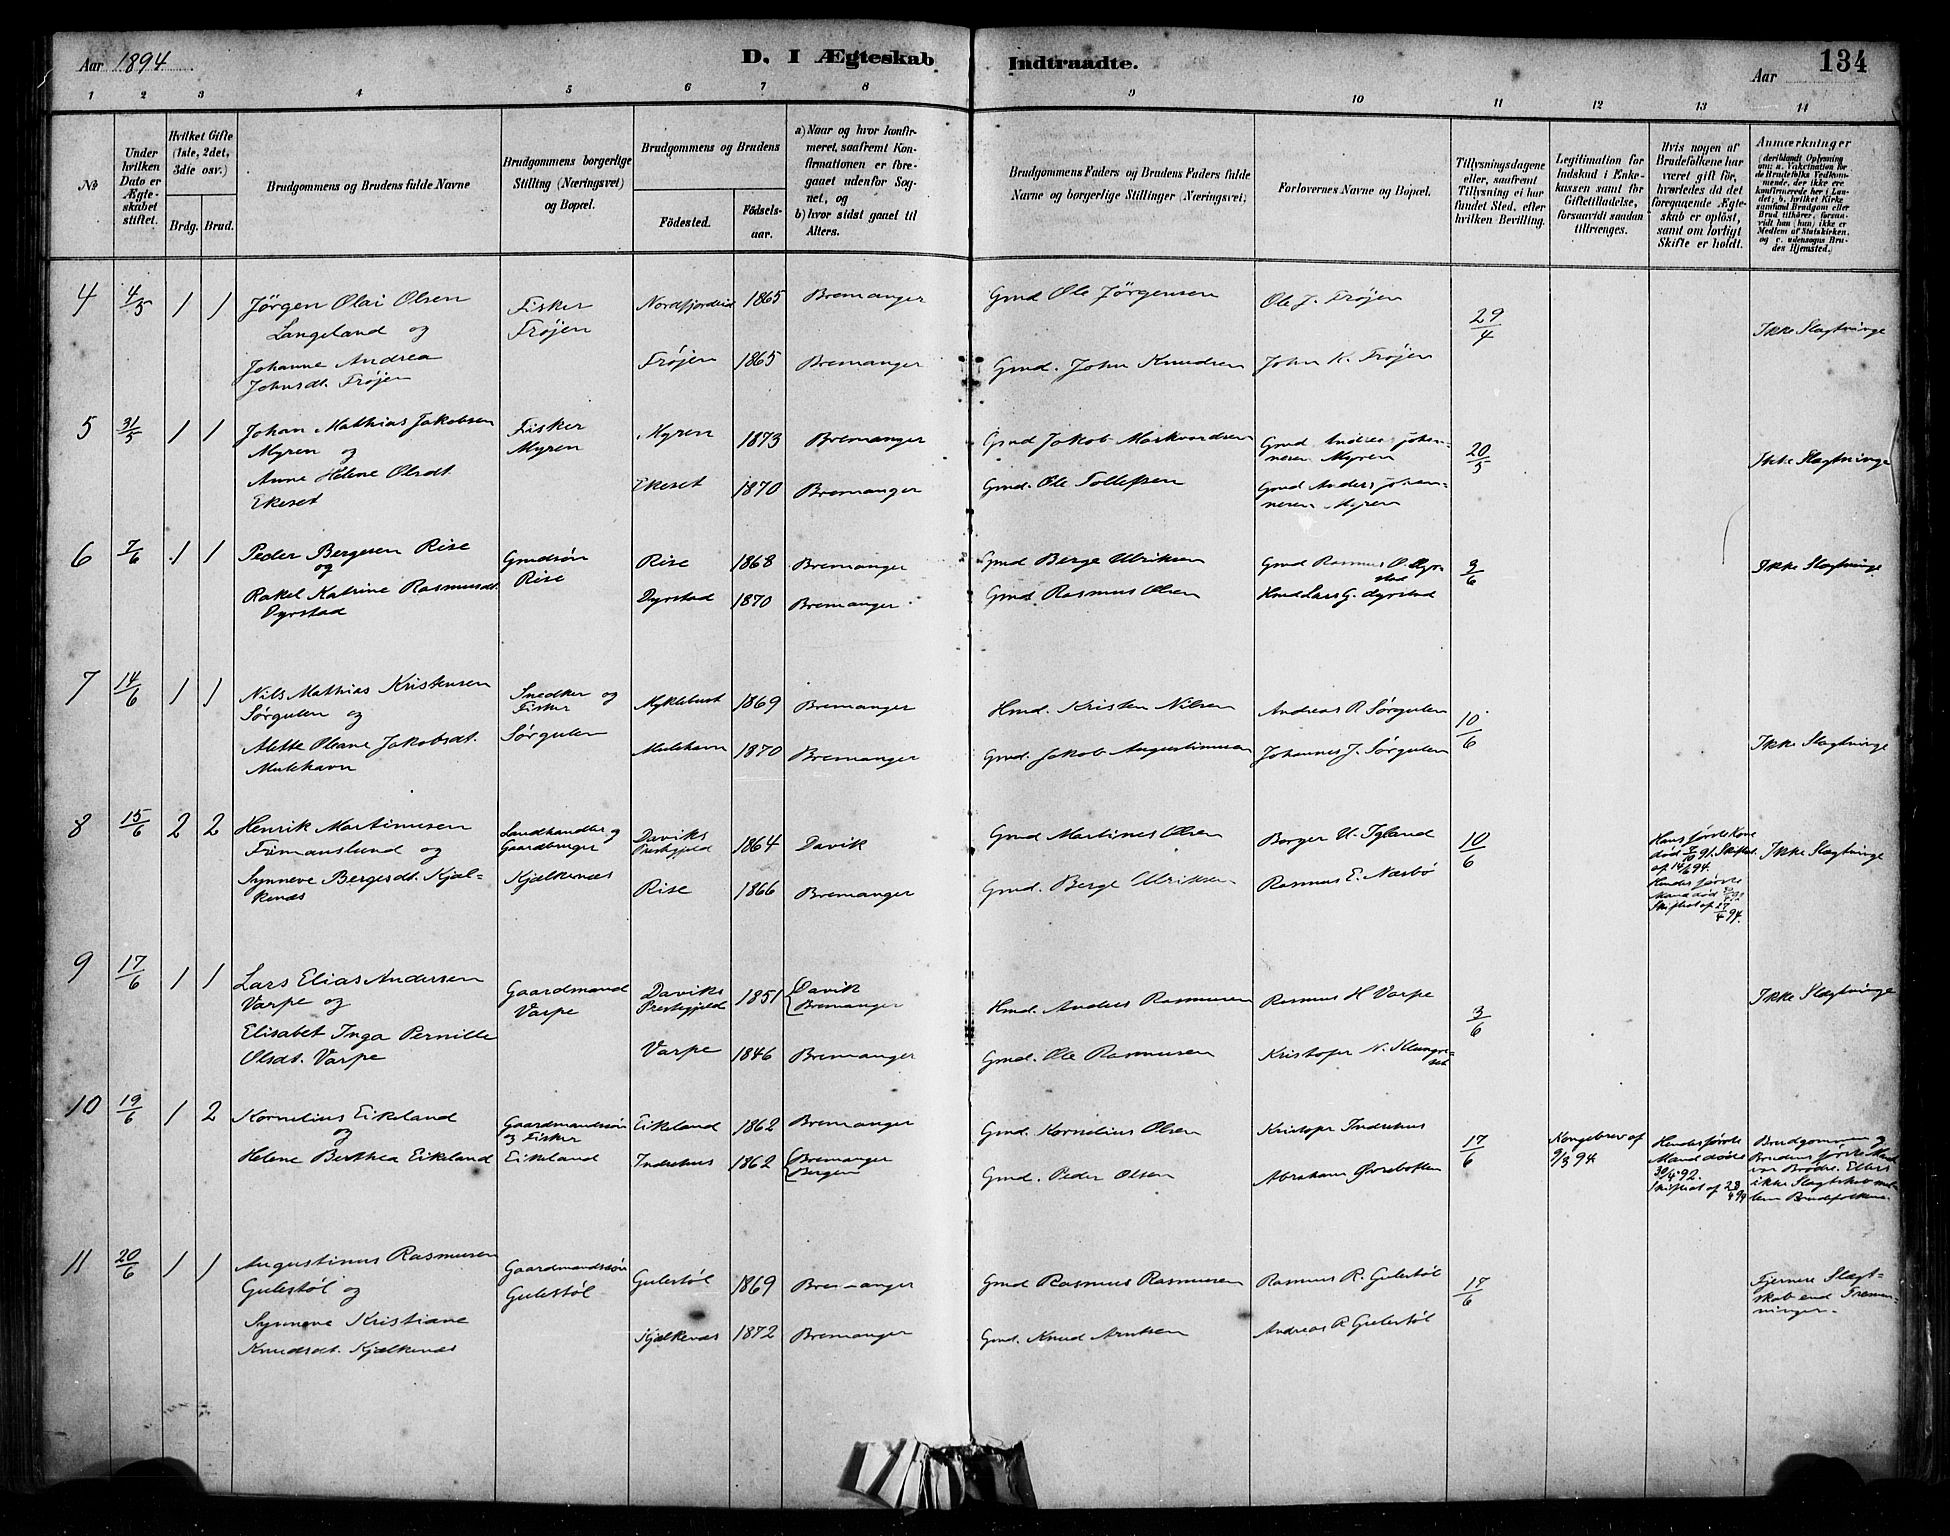 Aar 1894
D. I Ægteskab Indtraadte.
Aar
134
1 2 3 4 5 6 7 8 9 10 11 12 13 14
No
Under hvilken Dato er Ægteskabet stiftet.
Hvilket Gifte (1ste, 2det, 3die osv.)
Brdg. Brud.
Brudgommens og Brudens fulde Navne
Brudgommens borgerlige Stilling (Næringsvei) og Bopæl.
Brudgommens og Brudens
Födested.
Födselsaar.
a) Naar og hvor konfirmeret, saafremt Konfirmationen er foregaaet udenfor Sognet, og
b) hvor sidst gaaet til Alters.
Brudgommens Faders og Brudens Faders fulde Navne og borgerlige Stillinger (Næringsvei).
Forlovernes Navne og Bopæl.
Tillysningsdagene eller, saafremt Tillysning ei har fundet Sted, efter hvilken Bevilling.
Legitimation for Indskud i Enkekassen samt for Giftetilladelse, forsaavidt saadan tiltrænges.
Hvis nogen af Brudefolkene har været gift för, hvorledes da det foregaaende Ægteskab er oplöst, samt om lovligt Skifte er holdt.
Anmærkninger
(deriblandt Oplysning om: a. Vakcination for de Brudefolks Vedkommende, der ikke ere konfirmerede her i Landet; b. hvilket Kirkesamfund Brudgom eller Brud tilhörer, forsaavidt han (hun) ikke er Medlem af Statskirken, og c. udensogns Brudes Hjemsted.)
4 4/5 1 1 Jörgen Olai Olsen
Langeland og
Johanne Andrea
Johnsdt. Fröjen
Fisker
Fröjen
Nordfjordeid 1865 Bremanger
Fröjen 1865 Bremanger
Gmd Ole Jörgensen
Gmd. John Knudsen
Ole J. Fröjen
John K. Fröjen
29/4
Ikke Slægtninge
5 31/5 1 1 Johan Mathias Jakobsen
Myren og
Anne Helene Olsdt.
Ekeset
Fisker
Myren
Myren 1873 Bremanger
Ekeset 1870 Bremanger
Gmd Jakob Markvardsen
Gmd. Ole Tollefsen
Gmd Andreas Johannesen Myren
Gmd Anders Johannesen Myren
20/5
Ikke Slægtninge
6 7/6 1 1 Peder Bergesen Rise
og
Rakel Katrine Rasmusdt.
Dyrstad
Gmdsön
Rise
Rise 1868 Bremanger
Dyrstad 1870 Bremanger
Gmd Berge Ulriksen
Gmd Rasmus Olsen
Gmd Rasmus O. Dyrstad
Hmd Lars G. Dyrstad
3/6
Ikke Slægtninge
7 14/6 1 1 Nils Mathias Kristensen
Sörgulen og
Alette Oleane Jakobsdt.
Mulehavn
Snedker og
Fisker
Sörgulen
Myklebust 1869 Bremanger
Mulehavn 1870 Bremanger
Hmd. Kristen Nilsen
Gmd. Jakob Augustinusen
Andreas R Sörgulen
Johannes J. Sörgulen
10/6
Ikke Slægtninge
8 15/6 2 2 Henrik Martinusen
Frimanslund og
Synneve Bergesdt. Kjælkenæs
Landhandler og
Gaardbruger
Kjælkenæs
Daviks
Prestegjeld 1864 Davik
Rise 1866 Bremanger
Gmd Martines Olsen
Gmd. Berge Ulriksen
Börger U. Igland
Rasmus E. Næsbö
10/6
Hans förste Kone
död 7/10 91. Skiftet
af 14/6 94.
Hendes förste
Mand död
Skifteat af 27/4 94.
Ikke Slægtninge
9 17/6 1 1 Lars Elias Andersen
Varpe og
Elisabet Inga Pernille
Olsdt. Varpe
Gaardmand
Varpe
Daviks
Prestegjeld 1851 Davik
Bremanger
Varpe 1846 Bremanger
Hmd. Anders Rasmusen
Gmd. Ole Rasmusen
Rasmus H Varpe
Kristofer N.
3/6
Ikke Slægtninge
10 19/6 1 2 Kornelius Eikeland
og
Helene Berthea Eikeland
Gaardmandssön
og Fisker
Eikeland
Eikeland 1862 Bremanger
Indrehus 1862 Bremanger
Bergen
Gmd. Kornelius Olsen
Gmd. Peder Olsen
Kristofer Indrehus
Abraham Övrebotten
17/6
Kongebrev af
9/3 94
Hendes förste
Mand döde
30/4 92.
Skifteat af 28/4 94
Brudgommen og
Brudens förste Mand
var Brödre. Ellers
ikke Slægtskab mellem Brudefolkene.
11 20/6 1 1 Augustinus Rasmusen
Gulestöl og
Synneve Kristiane
Knudsdt. Kjælkenæs
Gaardmandssön
Gulestöl
Gulestöl 1869 Bremanger
Kjælkenæs 1872 Bremanger
Gmd Rasmus Rasmusen
Gmd. Knud Arntsen
Rasmus R. Gulestöl
Andreas R Gulestöl
17/6
Fjernere Slægtskab end